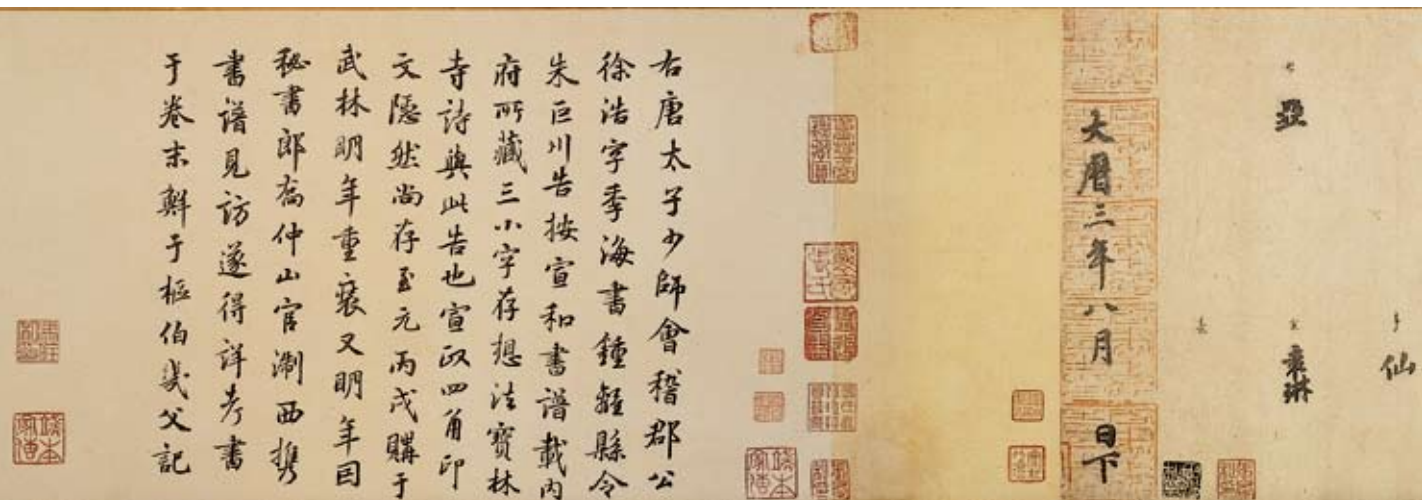 仙
袁琳
大曆三年八月 日下
右唐太子少師會稽郡公
徐浩字季海書鍾離縣令
朱巨川告按宣和書譜載內
府所藏三小字存想法寶林
寺詩與此告也宣政四角印
文隱然尚存至元丙戌購于
武林明年重裝又明年因
秘書郎喬仲山官淛西攜
書譜見訪遂得詳考書
于卷末鮮于樞伯幾父記